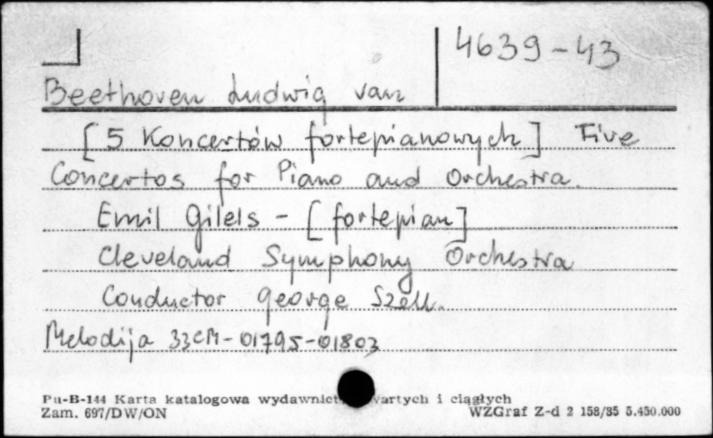 4639-43
Beethoven Ludwig van
[5 Koncertów fortepianowych] Five
Concertos for Piano and Orchestra.
Emil Gilels - [fortepian]
Cleveland Symphony Orchestra
Conductor George Szell.
Melodija 33CM-01795-01803
Pu-B-144 Karta katalogowa wydawnict wartych i ciągłych
Zam. 697/DW/ON WZGraf Z-d 2 158/85 5.450.000